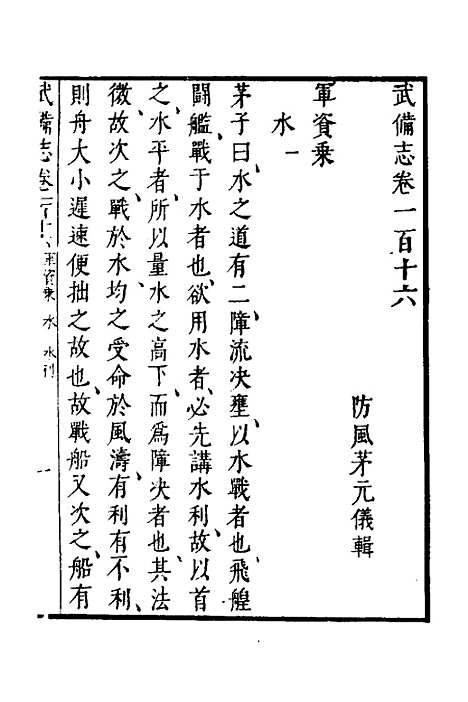 武備志卷一百十六
防風茅元儀輯
軍資乗
水一
茅子曰、水之道有二、障流决壅、以水戰者也、飛艎
鬪艦、戰于水者也、欲用水者、必先講水利、故以首
之、水平者、所以量水之高下、而爲障决者也、其法
微、故次之、戰於水、均之受命於風濤、有利有不利、
則舟大小遲速便拙之故也、故戰船又次之、船有
武備志卷 軍資乗 水 水利 一